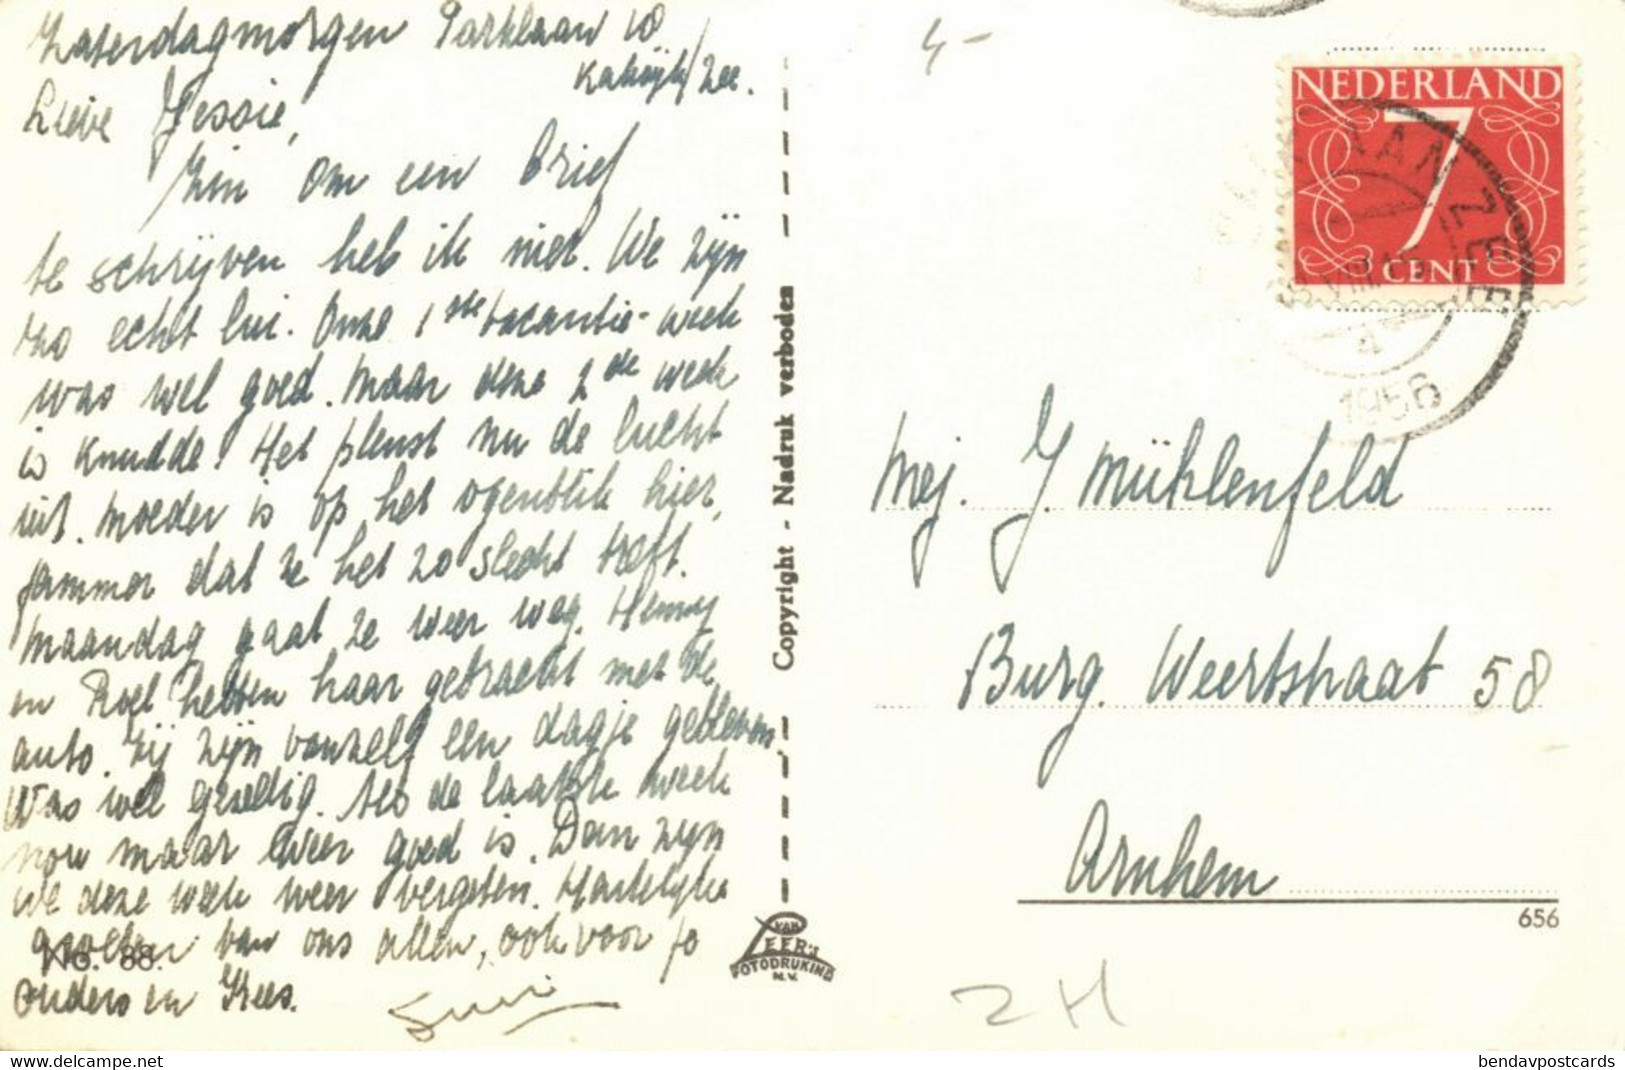 Zaterdagmorgen Parklaan 10
Katwijk/Zee.
Lieve Jessie,
Zin om een brief
te schrijven heb ik niet. We zijn
zo echt lui. Onze 1ste vacantie-week
was wel goed. Maar deze 2de week
is knudde! Het plenst nu de lucht
uit. Moeder is op het ogenblik hier,
jammer dat ze het zo slecht treft.
Maandag gaat ze weer weg. Henny
en Roel hebben haar gebracht met de
auto. Zij zijn vanzelf een dagje gebleven
Was wel gezellig. Als de laatste week
nou maar weer goed is. Dan zijn
we deze week weer vergeten. Hartelijke
groeten van ons allen, ook voor je
No. 88.
ouders en Kees.
Copyright - Nadruk verboden
VAN
LEER'S
FOTODRUKIND
N.V.
4-
NEDERLAND
7
CENT
AAN ZEE
4
1956
Mej. J. Mühlenfeld
Burg. Weertsstraat 58
Arnhem
656
ZH
bendavpostcards